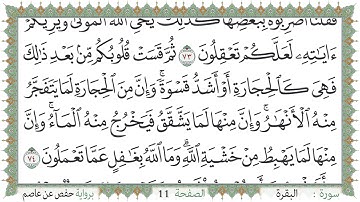 فَقُلْنَا ٱضْرِبُوهُ بِبَعْضِهَا كَذَٰلِكَ يُحْىِ ٱللَّهُ ٱلْمَوْتَىٰ وَيُرِيكُمْ
ءَايَٰتِهِۦ لَعَلَّكُمْ تَعْقِلُونَ ٧٣ ثُمَّ قَسَتْ قُلُوبُكُم مِّنۢ بَعْدِ ذَٰلِكَ
فَهِىَ كَٱلْحِجَارَةِ أَوْ أَشَدُّ قَسْوَةً ۚ وَإِنَّ مِنَ ٱلْحِجَارَةِ لَمَا يَتَفَجَّرُ
مِنْهُ ٱلْأَنْهَٰرُ ۚ وَإِنَّ مِنْهَا لَمَا يَشَّقَّقُ فَيَخْرُجُ مِنْهُ ٱلْمَآءُ ۚ وَإِنَّ
مِنْهَا لَمَا يَهْبِطُ مِنْ خَشْيَةِ ٱللَّهِ ۗ وَمَا ٱللَّهُ بِغَٰفِلٍ عَمَّا تَعْمَلُونَ ٧٤
سورة : البقرة الصفحة 11 برواية حفص عن عاصم